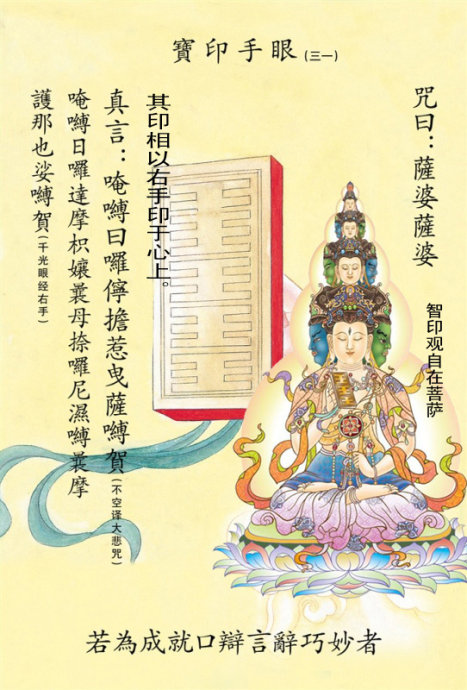 寶印手眼(三一)
咒曰：薩婆薩婆
智印观自在菩萨
其印相以右手印于心上。
真言：唵嚩日囉儜擔惹曳薩嚩賀(不空译大悲咒)
唵嚩日囉達摩枳孃曩母捺囉尼濕嚩曩摩
護那也娑嚩賀(千光眼经右手)
若為成就口辯言辭巧妙者